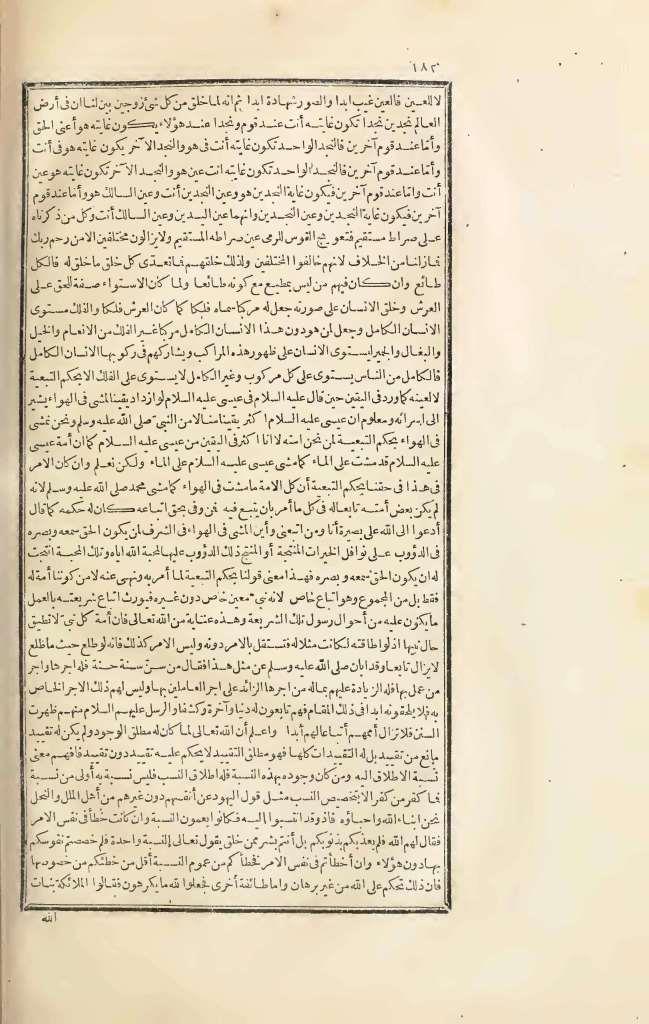 ١٨٢
لا للعين فالعين غيب ابدا والصور شهادة ابدا ثم انه لما خلق من كل شئ زوجين بين لنا ان فى أرض
العالم نجدين نجدا تكون غايته أنت عند قوم ونجدا عند هؤلاء يكون غايته هو أعنى الحق
وأما عند قوم آخرين فالنجد الواحد تكون غايته أنت فى هو والنجد الآخر يكون غايته هو فى أنت
وأما عند قوم آخرين فالنجد الواحد تكون غايته انت عين هو والنجد الآخر تكون غايته هو عين
أنت واما عند قوم آخرين فيكون غاية النجدين هو وعين النجدين أنت وعين السالك هو وأما عند قوم
آخرين فيكون غاية النجدين وعين النجدين وانهما عين اليدين وعين السالك أنت وكل من ذكرناه
على صراط مستقيم فتعويج القوس للرمى عين صراطه المستقيم ولا يزالون مختلفين الا من رحم ربك
فما زلنا من الخلاف لانهم خالفوا المختلفين ولذلك خلقهم فما تعدى كل خلق ما خلق له فالكل
طائع وان كان فيهم من ليس بمطيع مع كونه طائعا ولما كان الاستواء صفة للحق على
العرش وخلق الانسان على صورته جعل له مركبا سماه فلكا كما كان العرش فلكا والفلك مستوى
الانسان الكامل وجعل لمن هو دون هذا الانسان الكامل مركبا غير الفلك من الانعام والخيل
والبغال والحمير ليستوى الانسان على ظهور هذه المراكب ويشاركهم فى ركوبها الانسان الكامل
فالكامل من الناس يستوى على كل مركوب وغير الكامل لا يستوى على الفلك الا بحكم التبعية
لا لعينه كما ورد فى اليقين حين قال عليه السلام فى عيسى عليه السلام لو ازداد يقينا لمشى فى الهواء يشير
الى اسرائه ومعلوم ان عيسى عليه السلام اكثر يقينا منا لا من النبى صلى الله عليه وسلم ونحن نمشى
فى الهواء بحكم التبعية لمن نحن امته لا انا اكثر فى اليقين من عيسى عليه السلام كما ان أمة عيسى
عليه السلام قد مشت على الماء كما مشى عيسى عليه السلام على الماء ولكن نعلم وان كان الامر
فى هذا فى حقنا بحكم التبعية أن كل الامة ما مشت فى الهواء كما مشى محمد صلى الله عليه وسلم لانه
لم يكن بعض أمته تابعا له فى كل ما أمر بان يتبع فيه فمن وفى بحق اتباعه كان له حكمه كما قال
أدعوا الى الله على بصيرة أنا ومن اتبعنى وأين المشى فى الهواء فى الشرف لمن يكون الحق سمعه وبصره
فى الدؤوب على نوافل الخيرات المنتجة أو المنتج ذلك الدؤوب عليها لمحبة الله اياه وتلك المحبة انتجت
له ان يكون الحق سمعه وبصره فهذا معنى قولنا بحكم التبعية لما أمر به ونهى عنه لا من كوننا أمة له
فقط بل من المجموع وهو اتباع خاص لانه نبى معين خاص دون غيره فيورث اتباع شريعته بالعمل
ما يكون عليه من أحوال رسول تلك الشريعة وهذه عناية من الله تعالى فان أمة كل نبى لا تطيق
حال نبيها اذ لو اطاقته لكانت مثلا له فتستقل بالامر دونه وليس الامر كذلك فانه لو طلع حيث ما طلع
لا يزال تابعا وقد ابان صلى الله عليه وسلم عن مثل هذا فقال من سن سنة حسنة فله اجرها واجر
من عمل بها فله الزيادة عليهم بماله من اجرها الزائد على اجر العاملين بها وليس لهم ذلك الاجر الخاص
به فلا يلحقونه ابدا فى ذلك المقام فهم تابعون له دنيا وآخرة وكشفا والرسل عليهم السلام منهم ظهرت
السنن فلا تزال أممهم أتباعا لهم أبدا واعلم أن الله تعالى لما كان له مطلق الوجود ولم يكن له تقييد
مانع من تقييد بل له التقييدات كلها فهو مطلق التقييد لا يحكم عليه تقييد دون تقييد فافهم معنى
نسبة الاطلاق اليه ومن كان وجوده بهذه النسبة فله اطلاق النسب فليس نسبة به أولى من نسبة
فما كفر من كفر الا بتخصيص النسب مثل قول اليهود عن أنفسهم دون غيرهم من أهل الملل والنحل
نحن ابناء الله واحباؤه فاذ وقد انتسبوا اليه فكانوا يعمون النسبة وان كانت خطأ فى نفس الامر
فقال لهم الله فلم يعذبكم بذنوبكم بل أنتم بشر ممن خلق يقول تعالى النسبة واحدة فلم خصصتم نفوسكم
بها دون هؤلاء وان أخطأتم فى نفس الامر فخطأكم من عموم النسبة أقل من خطئكم من خصوصها
فان ذلك تحكم على الله من غير برهان واما طائفة أخرى فجعلوا لله ما يكرهون فقالوا الملائكة بنات
الله